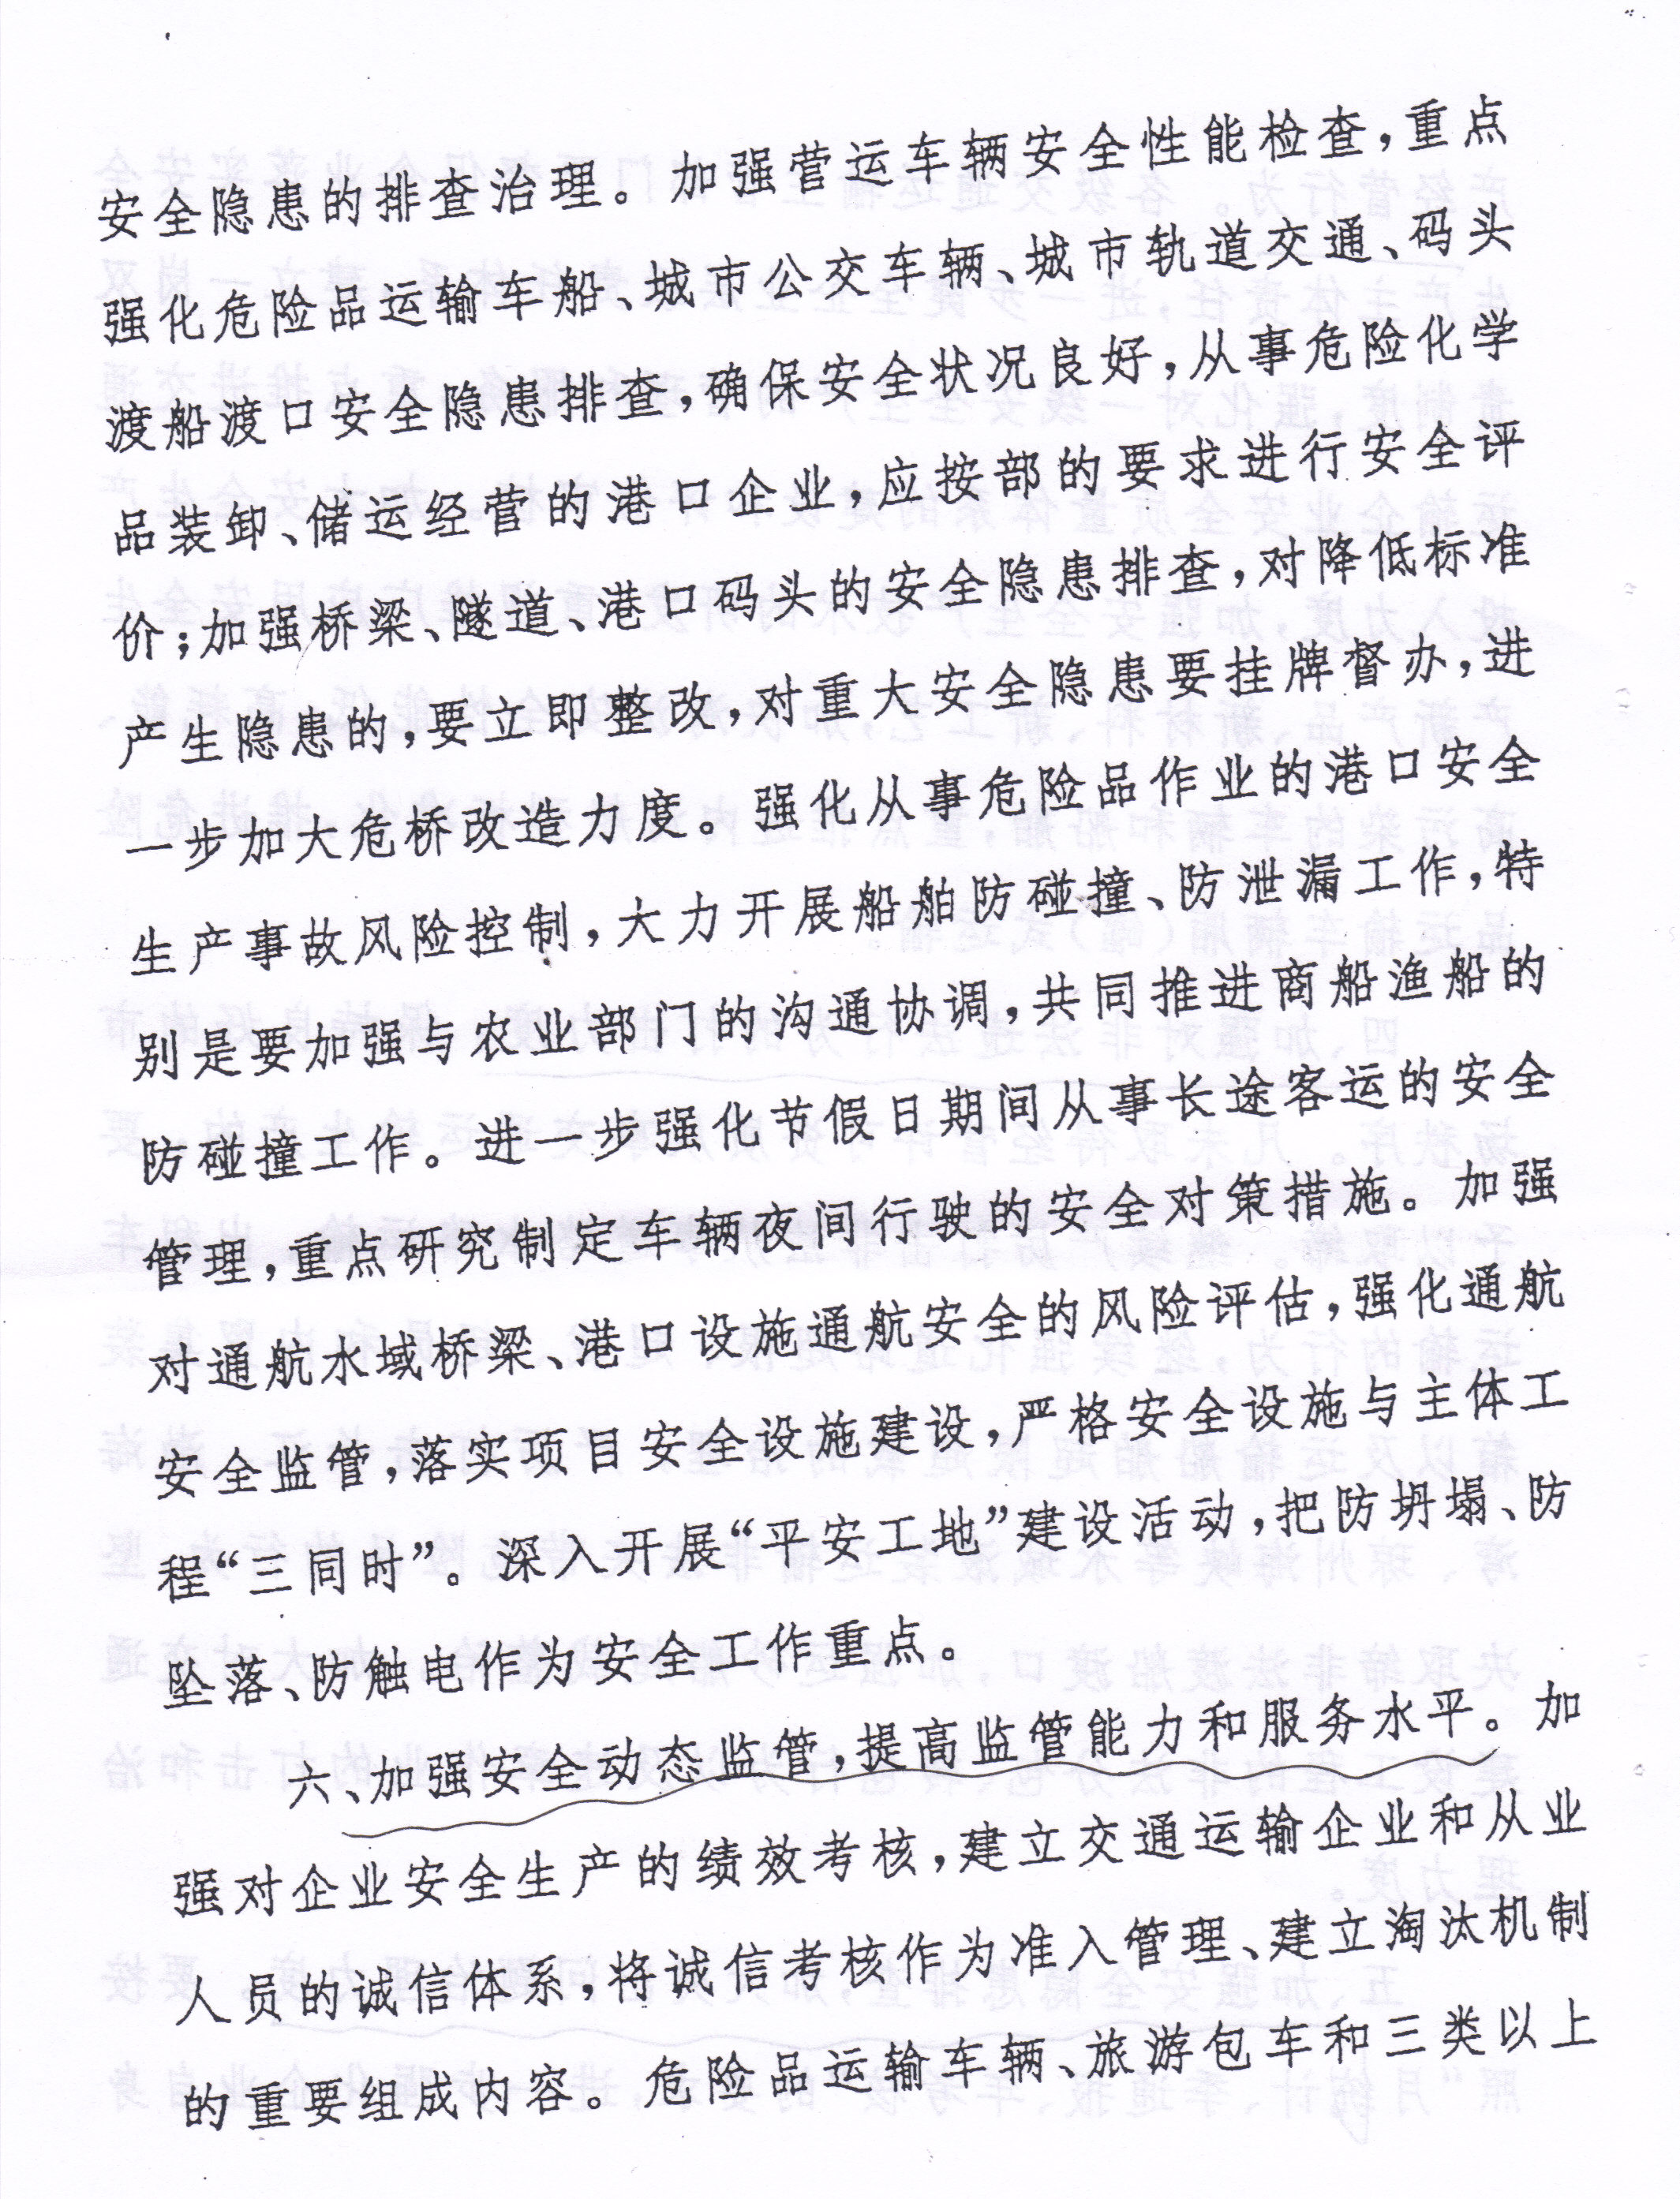 安全隐患的排查治理。加强营运车辆安全性能检查，重点
强化危险品运输车船、城市公交车辆、城市轨道交通、码头
渡船渡口安全隐患排查，确保安全状况良好，从事危险化学
品装卸、储运经营的港口企业，应按部的要求进行安全评
价；加强桥梁、隧道、港口码头的安全隐患排查，对降低标准
产生隐患的，要立即整改，对重大安全隐患要挂牌督办，进
一步加大危桥改造力度。强化从事危险品作业的港口安全
生产事故风险控制，大力开展船舶防碰撞、防泄漏工作，特
别是要加强与农业部门的沟通协调，共同推进商船渔船的
防碰撞工作。进一步强化节假日期间从事长途客运的安全
管理，重点研究制定车辆夜间行驶的安全对策措施。加强
对通航水域桥梁、港口设施通航安全的风险评估，强化通航
安全监管，落实项目安全设施建设，严格安全设施与主体工
程“三同时”。深入开展“平安工地”建设活动，把防坍塌、防
坠落、防触电作为安全工作重点。
六、加强安全动态监管，提高监管能力和服务水平。加
强对企业安全生产的绩效考核，建立交通运输企业和从业
人员的诚信体系，将诚信考核作为准入管理、建立淘汰机制
的重要组成内容。危险品运输车辆、旅游包车和三类以上